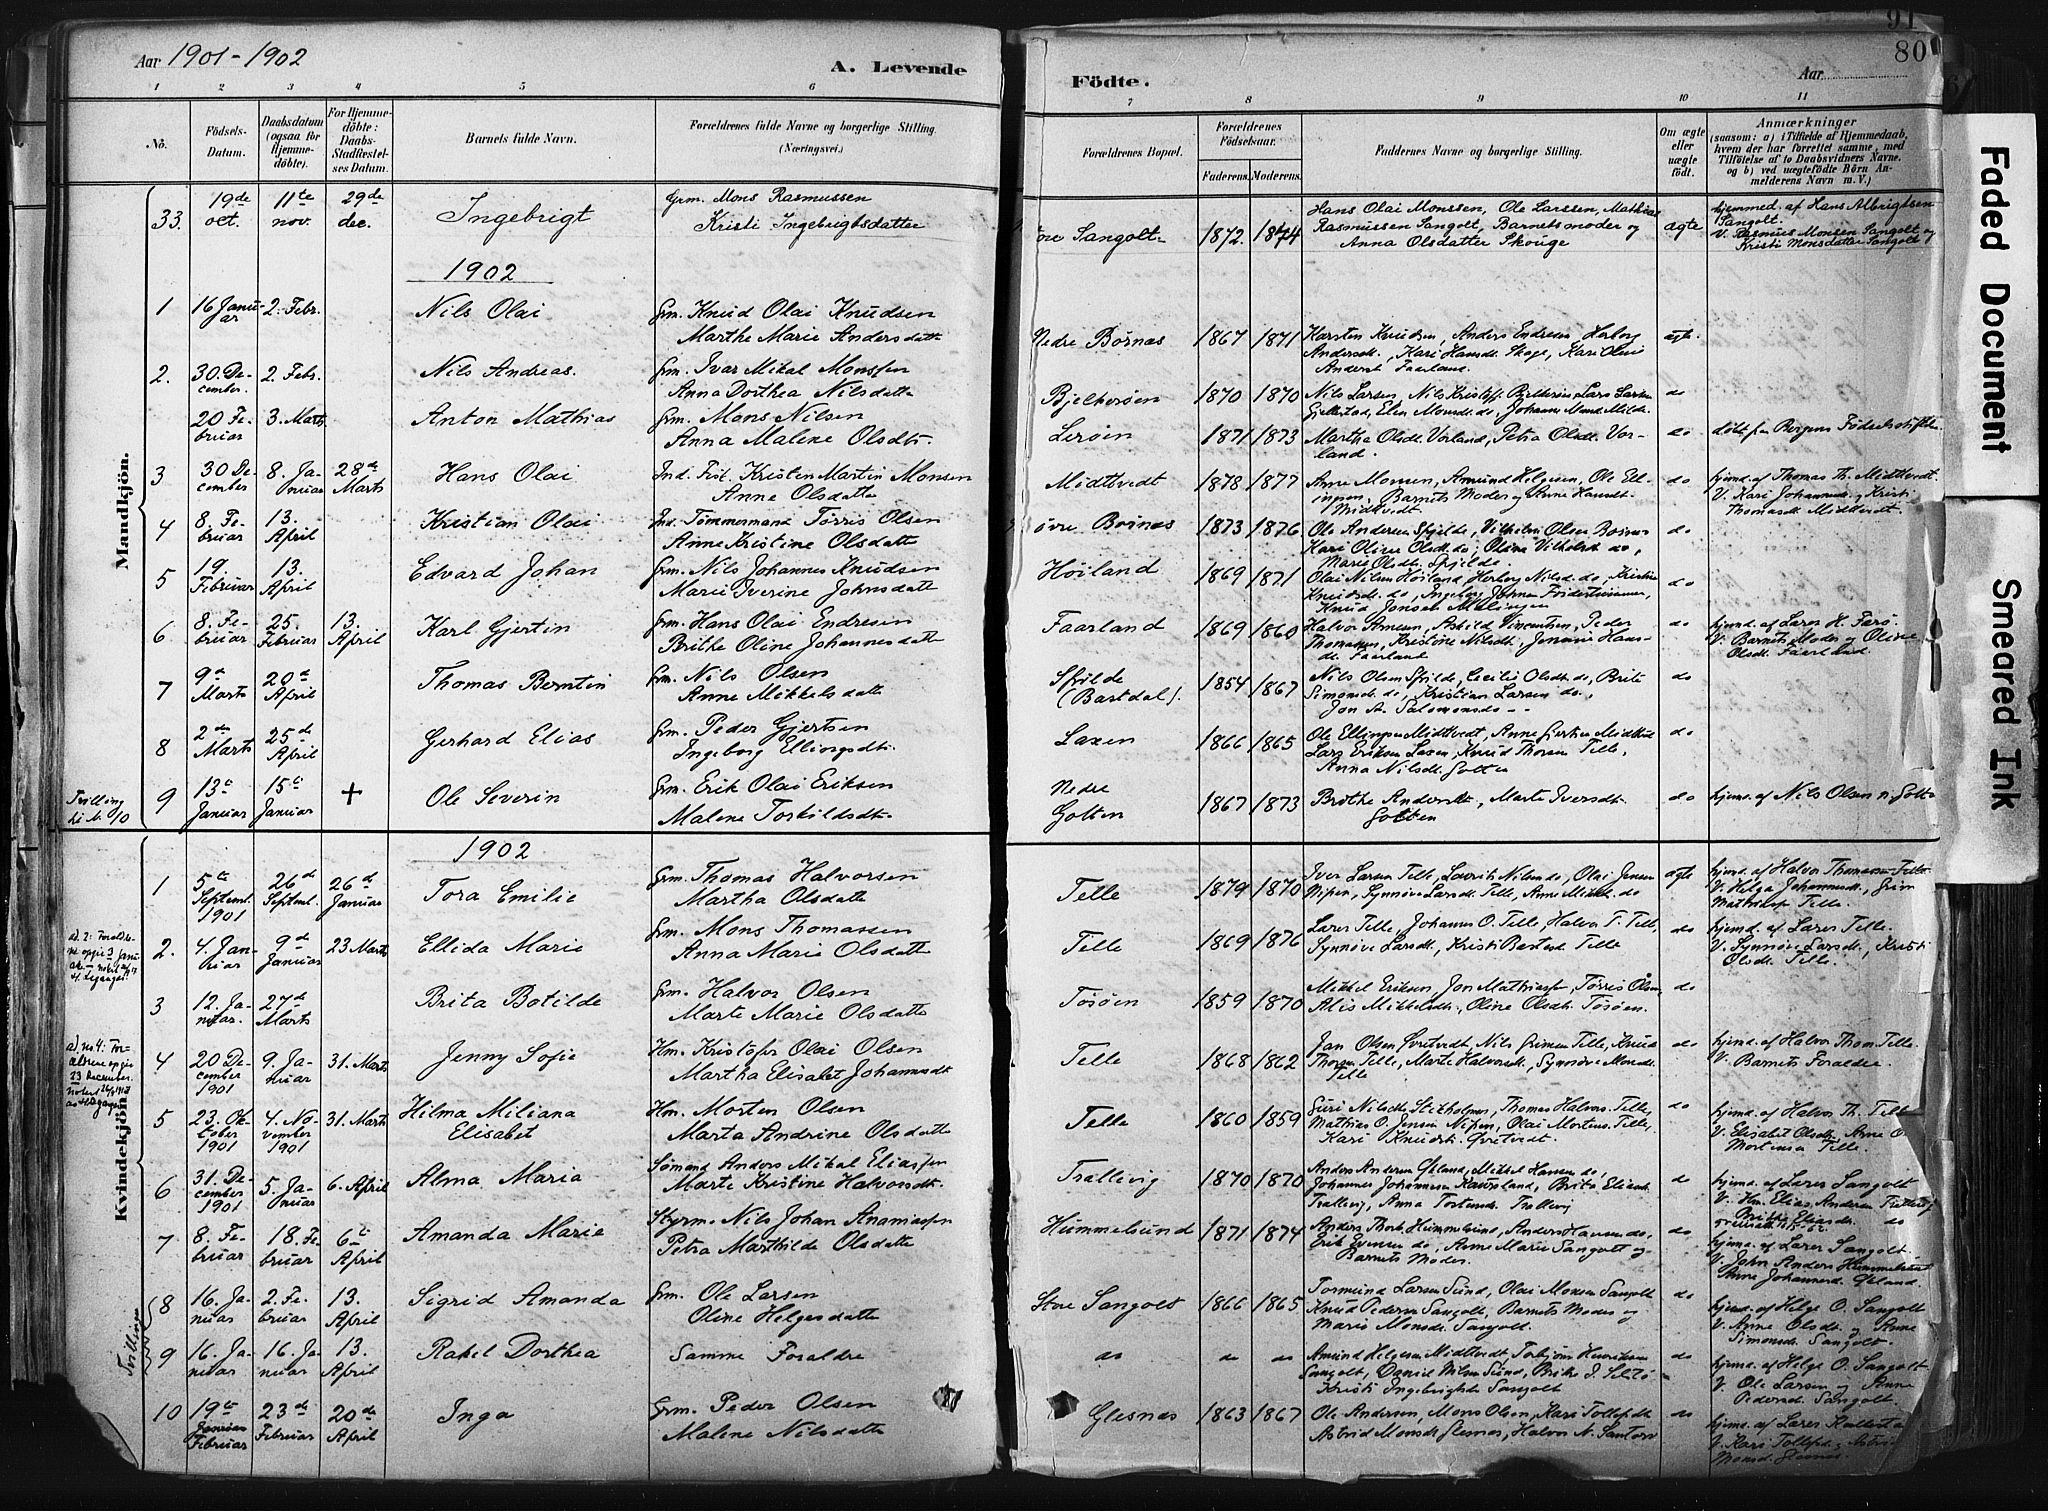 Aar 1901-1902
A. Levende
Födte.
Aar
91
80
1 2 3 4 5 6 7 8 9 10 11
No.
Födsels-Datum.
Daabsdatum (ogsaa for Hjemmedöbte).
For Hjemmedöbte: Daabs-Stadfæstelses Datum.
Barnets fulde Navn.
Forældrenes fulde Navne og borgerlige Stilling. (Næringsvei.)
Forældrenes Bopæl.
Forældrenes Födselsaar.
Faderens. Moderens.
Faddernes Navne og borgerlige Stilling.
Om ægte eller uægte födt.
Anmærkninger
(saasom: a) i Tilfælde af Hjemmedaab, hvem der har forrettet samme, med Tilföielse af to Daabsvidners Navne. og b) ved uægtefödte Börn Anmelderens Navn m. V.)
Mandkjön.
33. 19de oct. 11te nov. 29de dec. Ingebrigt
Grm. Mons Rasmussen
Kristi Ingebrigtsdatter
Store Sangolt. 1872. 1874
Hans Olai Monssen, Ole Larssen, Mathias
Rasmussen Sangolt, Barnets moder og
Anna Olsdatter Skouge
ægte
hjemmed. af Hans Albrigtsen
Sangolt.
V. Rasmus Monsen Sangolt og
Kristi Monsdatter Sangolt
1902
1 16 Januar 2. Febr. Nils Olai
Grm. Knud Olai Knudsen
Marthe Marie Andersdatt
Nedre Börnæs 1867 1871
Karsten Knudsen, Anders Endresen, Herborg
Andersdt., Kari Hansdt. Skoge, Kari Oline
Andersdt Faarland
ægte.
2. 30. December 2. Febr. Nils Andreas.
Grm. Ivar Mikal Monssen
Anna Dorthea Nilsdatte
Bjelkerøen 1870 1870
Nils Larsen, Nils Kristoff. Bjelkerøen Lars Larsen
do
20 Februar 3. Marts Anton Mathias
Grm. Mons Nilsen
Anna Malene Olsdtr
Lerøen 1871 1873
Martha Olsdt. Vorland, Petra Olsdt. Vorland.
do
døbt paa Bergens Fødselsstiftelse
3 30 December 8. Januar 28de Marts Hans Olai
Ind. Fist. Kristen Martin Monsen
Anne Olsdatte
Midttvedt 1878 1877
Anne Monsen, Amund Helgesen, Ole Ellingsen, Barnets Moder og Anne Hansdt
Midttvedt
do
hjemd. af Thomas Th. Midttvedt.
V. Kari Johannesdt. og Kristi
Thomasdt. Midttvedt.
4 8. Februar 13. April Kristian Olai
Ind. Tømmermand Tørris Olsen
Anne Kristine Olsdatte
Øvre Bornæs 1873 1876
Ole Andersen Spjelde, Vilhelm Olsen Bornæs
Kari Oline Olsdt. do, Oline Vilhelmsdt do,
Marie Olsdt. Spjelde.
do
5 19. Februar 13. April Edvard Johan
Grm. Nils Johannes Knudsen
Marie Iverine Johnsdatte
Høiland 1869 1871
Olai Nilsen Høiland, Herborg Nilsdt. do, Kristine
Knudsdt. do,
Knud Jonsen
do
6 8. Februar 25. Februar 13. April Karl Gjertin
Grm. Hans Olai Endresen
Brithe Oline Johannesdatte
Faarland 1869 1860
Halvor Arnesen, Askild Vincentsen, Peder
Thomassen, Kristine Nilsdt. Jensine Hansdt. Faarland
do
hjemd. af Lars H. Farø.
V. Barnets Moder og Oline
Olsdt. Faarland.
7 9de Marts 20de April Thomas Berntin
Grm. Nils Olsen
Anne Mikkelsdatte
Spilde (Bartdal). 1854 1867
Nils Olsen Spilde, Cecilie Olsdt. do, Brite
Simonsdt. do, Kristian Larsen do,
Jon A. Salomonsdo
do
8 2den Marts 25de April Gerhard Elias
Grm. Peder Gjertsen
Ingeborg Ellingsdt.
Laxen 1866 1865
Ole Ellingsen Midttvedt, Anne Gjertsen Midttvedt
Lars Eriksen Laxen, Knud Thorsen Telle,
Anna Nilsdt. Golten
do
Tvilling til No 10
9 13de Januar 15de Januar + Ole Severin
Grm. Erik Olai Eriksen
Malene Torkildsdt.
Nedre Golten 1867 1873
Brithe Andersdt, Marte Iversdt.
Golten
do
hjemd. af Nils Olsen n. Golten
Kvindekjön.
1902
1 5te Septemb. 1901 26de Septembr. 26de Januar Tora Emilie
Grm. Thomas Halvorsen
Martha Olsdatte
Telle 1879 1870
Iver Larsen Telle, Lavrits Nilsen do, Olai Jensen
Nipen, Synnøve Larsdt. Telle, Anne Mikkelsdt. do
ægte
hjemd. af Halvor Thomassen Telle
V. Helga Johannesdt., Grim
Mathiasen Telle.
ad. 2: Forældrene opgir 3 Januar
2. 4. Januar 9de Januar 23 Marts Ellida Marie
Grm. Mons Thomassen
Anna Marie Olsdatte
Telle 1869 1876
Lars Telle, Johannes O. Telle, Halvor T. Telle,
Synnøve Larsdt., Kristi Telle
do
hjemd. af Lars Telle.
V. Synnøve Larsdt., Kristi
Olsdt. Telle.
3 12. Januar. 27de Marts Brita Botilde
Grm. Halvor Olsen
Marte Marie Olsdatte
Tosøen 1859 1870
Mikkel Eriksen, Jon Mathiassen, Tørris Olsen,
Alis Mikkelsdt., Oline Olsdt. Tosøen.
do
ad no 4: Forældrene opgir 23 December.
4 20 December 1901 9. Januar 31. Marts Jenny Sofie
Hm. Kristofer Olai Olsen
Martha Elisabet Johannesdt
Telle 1868 1862
Jan Olsen Qvetvedt, Nils Grimsen Telle, Knud
Thorsen Telle, Marte Halvorsdt., Synnøve Monsdt.
Telle
do
hjemd. af Halvor Thom. Telle.
V. Barnets Forældre.
5 23. Oktober 1901 4. November 1901 31. Marts Hilma Miliana
Elisabet
Hm. Morten Olsen
Marta Andrine Olsdatte
Telle 1860 1859
Guri Nilsdt. Stokholmen, Thomas Halvors. Telle,
Mathias O. Jensen Nipen, Olai Mortens. Telle,
Kari Knudsdt. Qvetvedt.
do
hjemd. af Halvor Th. Telle
V. Elisabet Olsdt., Anne O.
Mortensen Telle.
6 31. December 1901 5. Januar 6. April Alma Maria
Sømand Anders Mikal Eliassen
Marte Kristine Halvorsdt.
Trællevig 1870 1870
Anders Andersen Økland, Mikkel Hansen do,
Johannes Johannessen Kausland, Brita Eliasdt.
Trællevig, Anna Trællevig
do
hjemd. af Lars Sangolt
V. Hm. Elias Andersen Trællevig
Brithe Eliasdt. do
7 8. Februar 18. Februar 6te April Amanda Marie
Styrm. Nils Johan Ananiassen
Petra Marthilde Olsdatte
Hummelsund 1871 1874
Anders Thork. Hummelsund, Anders Hansen do,
Erik Evensen do, Anne Marie Sangolt og
Barnets Moder.
do
hjemd. af Lars Sangolt.
V. John Anders. Hummelsund
Anne Johannesd. Økland.
Tvillinger
8 16. Januar 2. Februar 13. April Sigrid Amanda
Grm. Ole Larsen
Oline Helgesdatte
Store Sangolt 1866 1865
Tormund Larsen Sund, Olai Monsen Sangolt
Knud Pedersen Sangolt, Barnets Moder og
Marie Monsdt. Sangolt.
do
hjemd. af Helge O. Sangolt
V. Anne Olsdt. og Anne
Simonsdt. Sangolt
9 16. Januar 16. Januar 13. April Rakel Dorthea
Samme Forældre
do do do
Amund Helgesen Midttvedt, Torbjørn Henriksen
Sangolt, Daniel Nilsen Sund, Brithe J.
Kristi Ingebrigtsdt. Sangolt
do
hjemd. af Helge O. Sangolt.
V. Ole Larsen og Anne
Pedersd. Sangolt.
10 19de Januar Februar 23de Februar 20de April Inga
Grm. Peder Olsen
Malene Nilsdatte
Glesnæs 1863 1867
Ole Andersen, Mons Olsen, Kari Tollefsdt
Astrid Monsdt. Glesnæs, Halvor N.
do
hjemd. af Lars Kallestad
V. Kari Tollefsd. og Astrid
Monsd. Glesnæs.
Faded Document
Smeared Ink